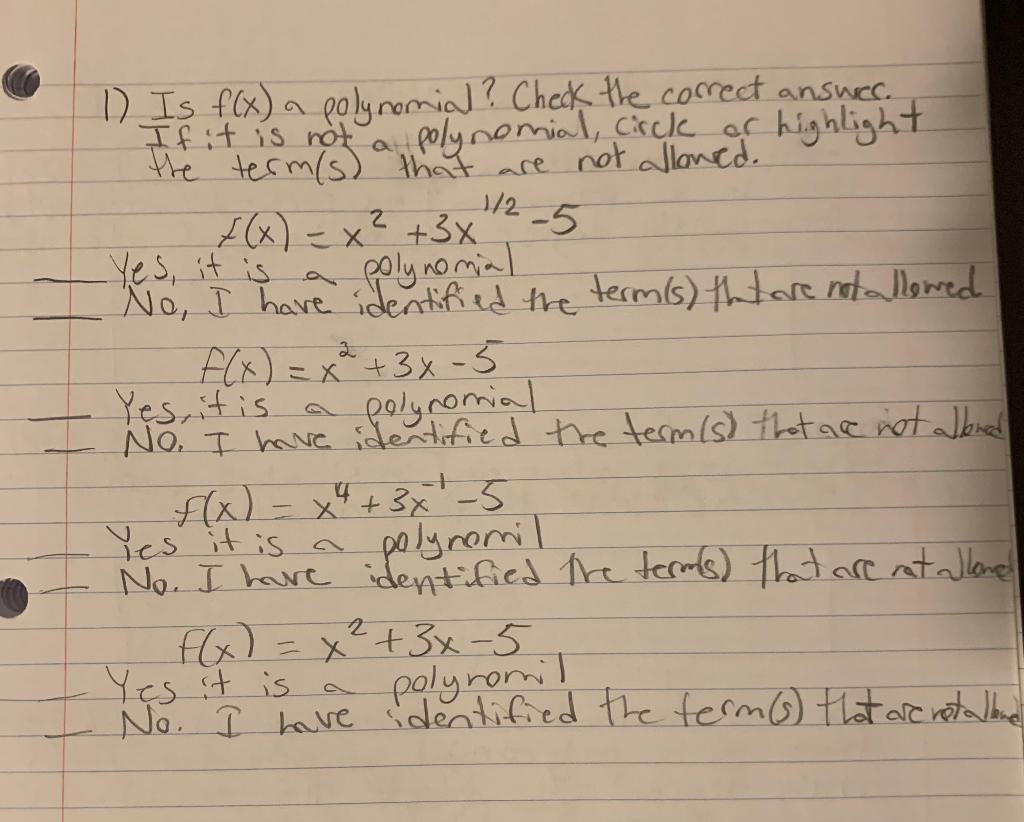 1) Is f(x) a polynomial? Check the correct answer.
If it is not a polynomial, circle or highlight
the term(s) that are not allowed.
f(x) = x² + 3x^1/2 - 5
__ Yes, it is a polynomial
__ No, I have identified the term(s) that are not allowed
f(x) = x² + 3x - 5
__ Yes, it is a polynomial
__ No. I have identified the term(s) that are not allowed
f(x) = x⁴ + 3x⁻¹ - 5
__ Yes it is a polynomil
__ No. I have identified the term(s) that are not allowed
f(x) = x² + 3x - 5
__ Yes it is a polynomil
__ No. I have identified the term(s) that are not allowed